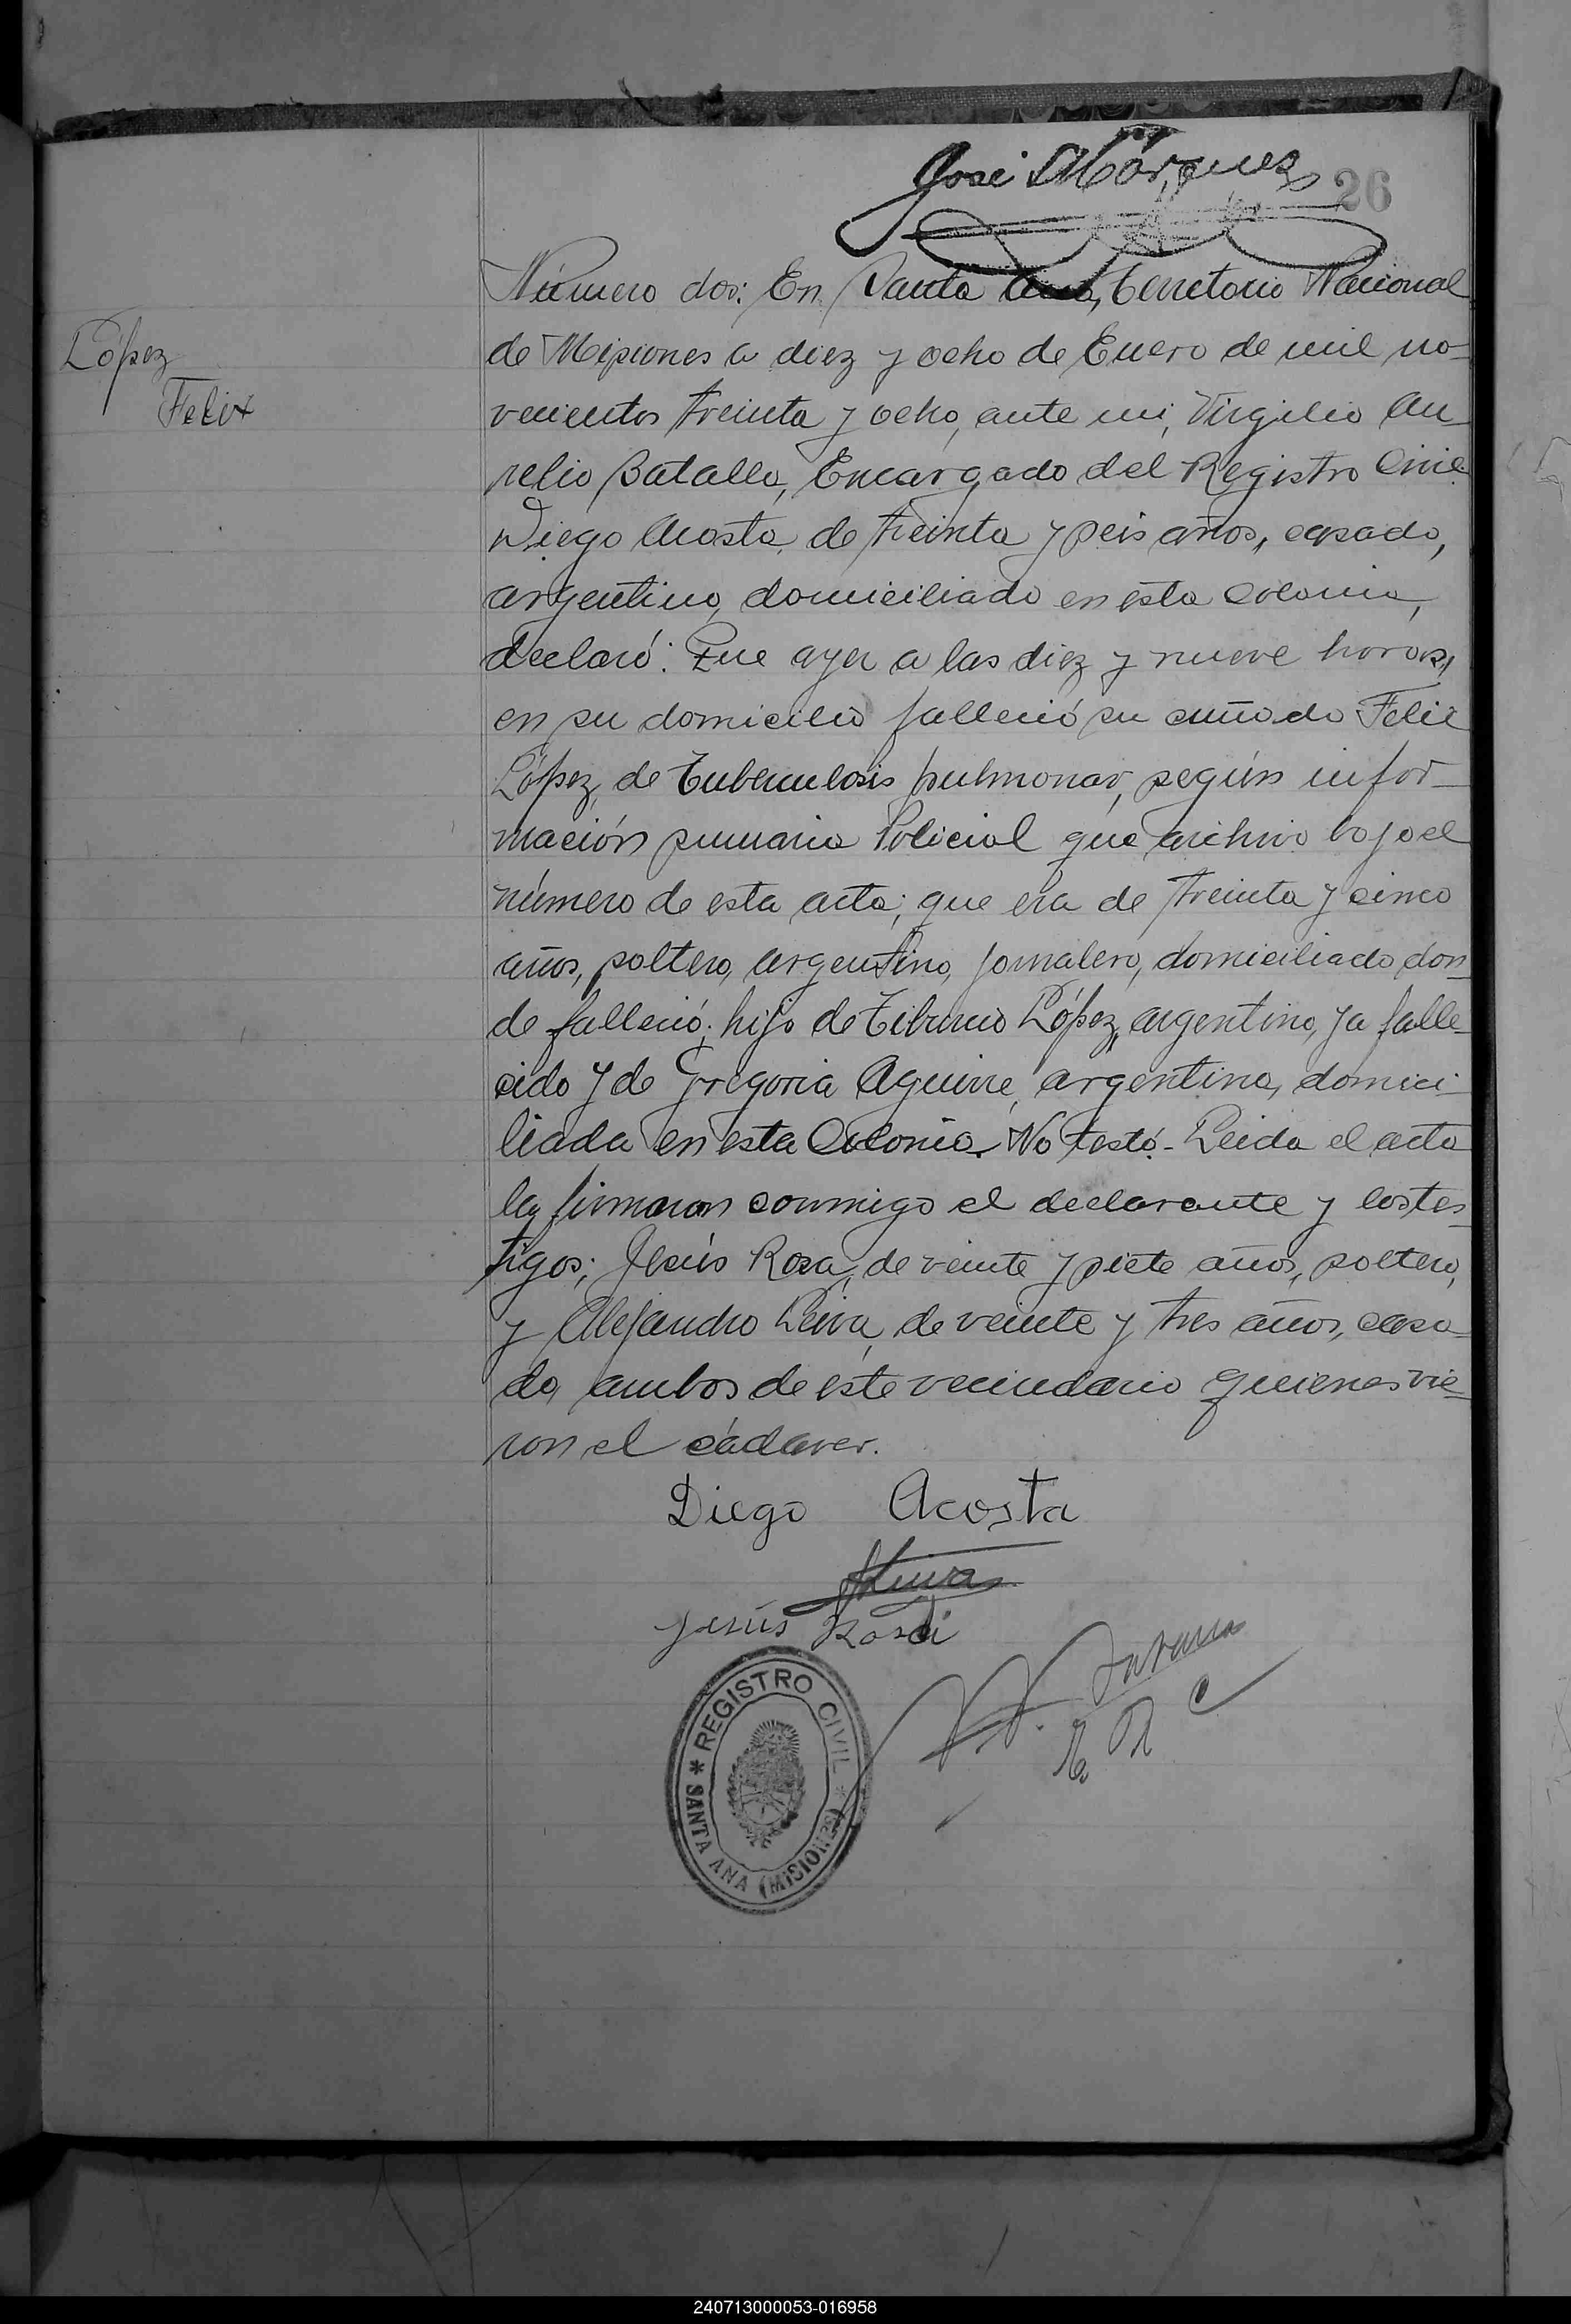 José Márquez
26
Número dos: En Santa Ana, Territorio Nacional
López
de Misiones a diez y ocho de Enero de mil no-
Felix
vecientos treinta y ocho, ante mi, Virgilio Au
relio Batalla, Encargado del Registro Civil
Diego Acosta, de treinta y seis años, casado,
argentino, domiciliado en esta Colonia,
declaró: Que ayer a las diez y nueve horas,
en su domicilio falleció su cuñado Felix
López, de Tuberculosis pulmonar, según infor-
mación sumaria Policial que archivo bajo el
número de esta acta; que era de treinta y cinco
años, soltero, argentino, jornalero, domiciliado don-
de falleció; hijo de Tiburcio López, argentino, ya falle-
cido y de Gregoria Aguirre, argentina, domici-
liada en esta Colonia. No testó.- Leida el acta
la firmaron conmigo el declarante y los tes-
tigos; Jesús Rosa, de veinte y siete años, soltero,
y Alejandro Leiva, de veinte y tres años, casa-
do, ambos de este vecindario quienes vie-
ron el cádaver.
Diego Acosta
ALeiva
Jesús Rosa
REGISTRO CIVIL
SANTA ANA (MISIONES)
240713000053-016958